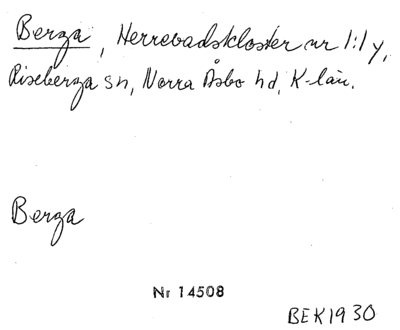 Berga, Herrevadskloster nr 1:1 y,
Riseberga sn, Norra Åsbo hd, K-län.
Berga
Nr 14508
BEK1930